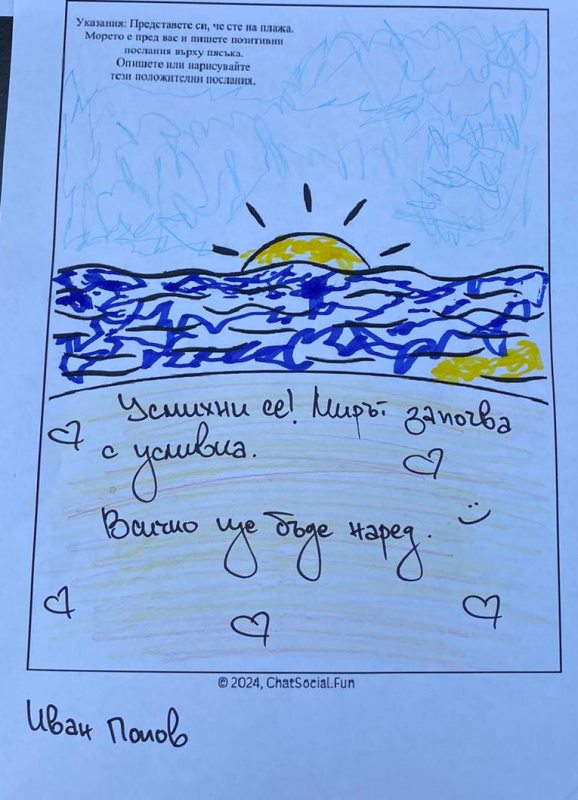 Указания: Представете си, че сте на плажа.
Морето е пред вас и пишете позитивни
послания върху пясъка.
Опишете или нарисувайте
тези положителни послания.
Усмихни се! Мирът започва
с усмивка.
Всичко ще бъде наред. :)
© 2024, ChatSocial.Fun
Иван Попов